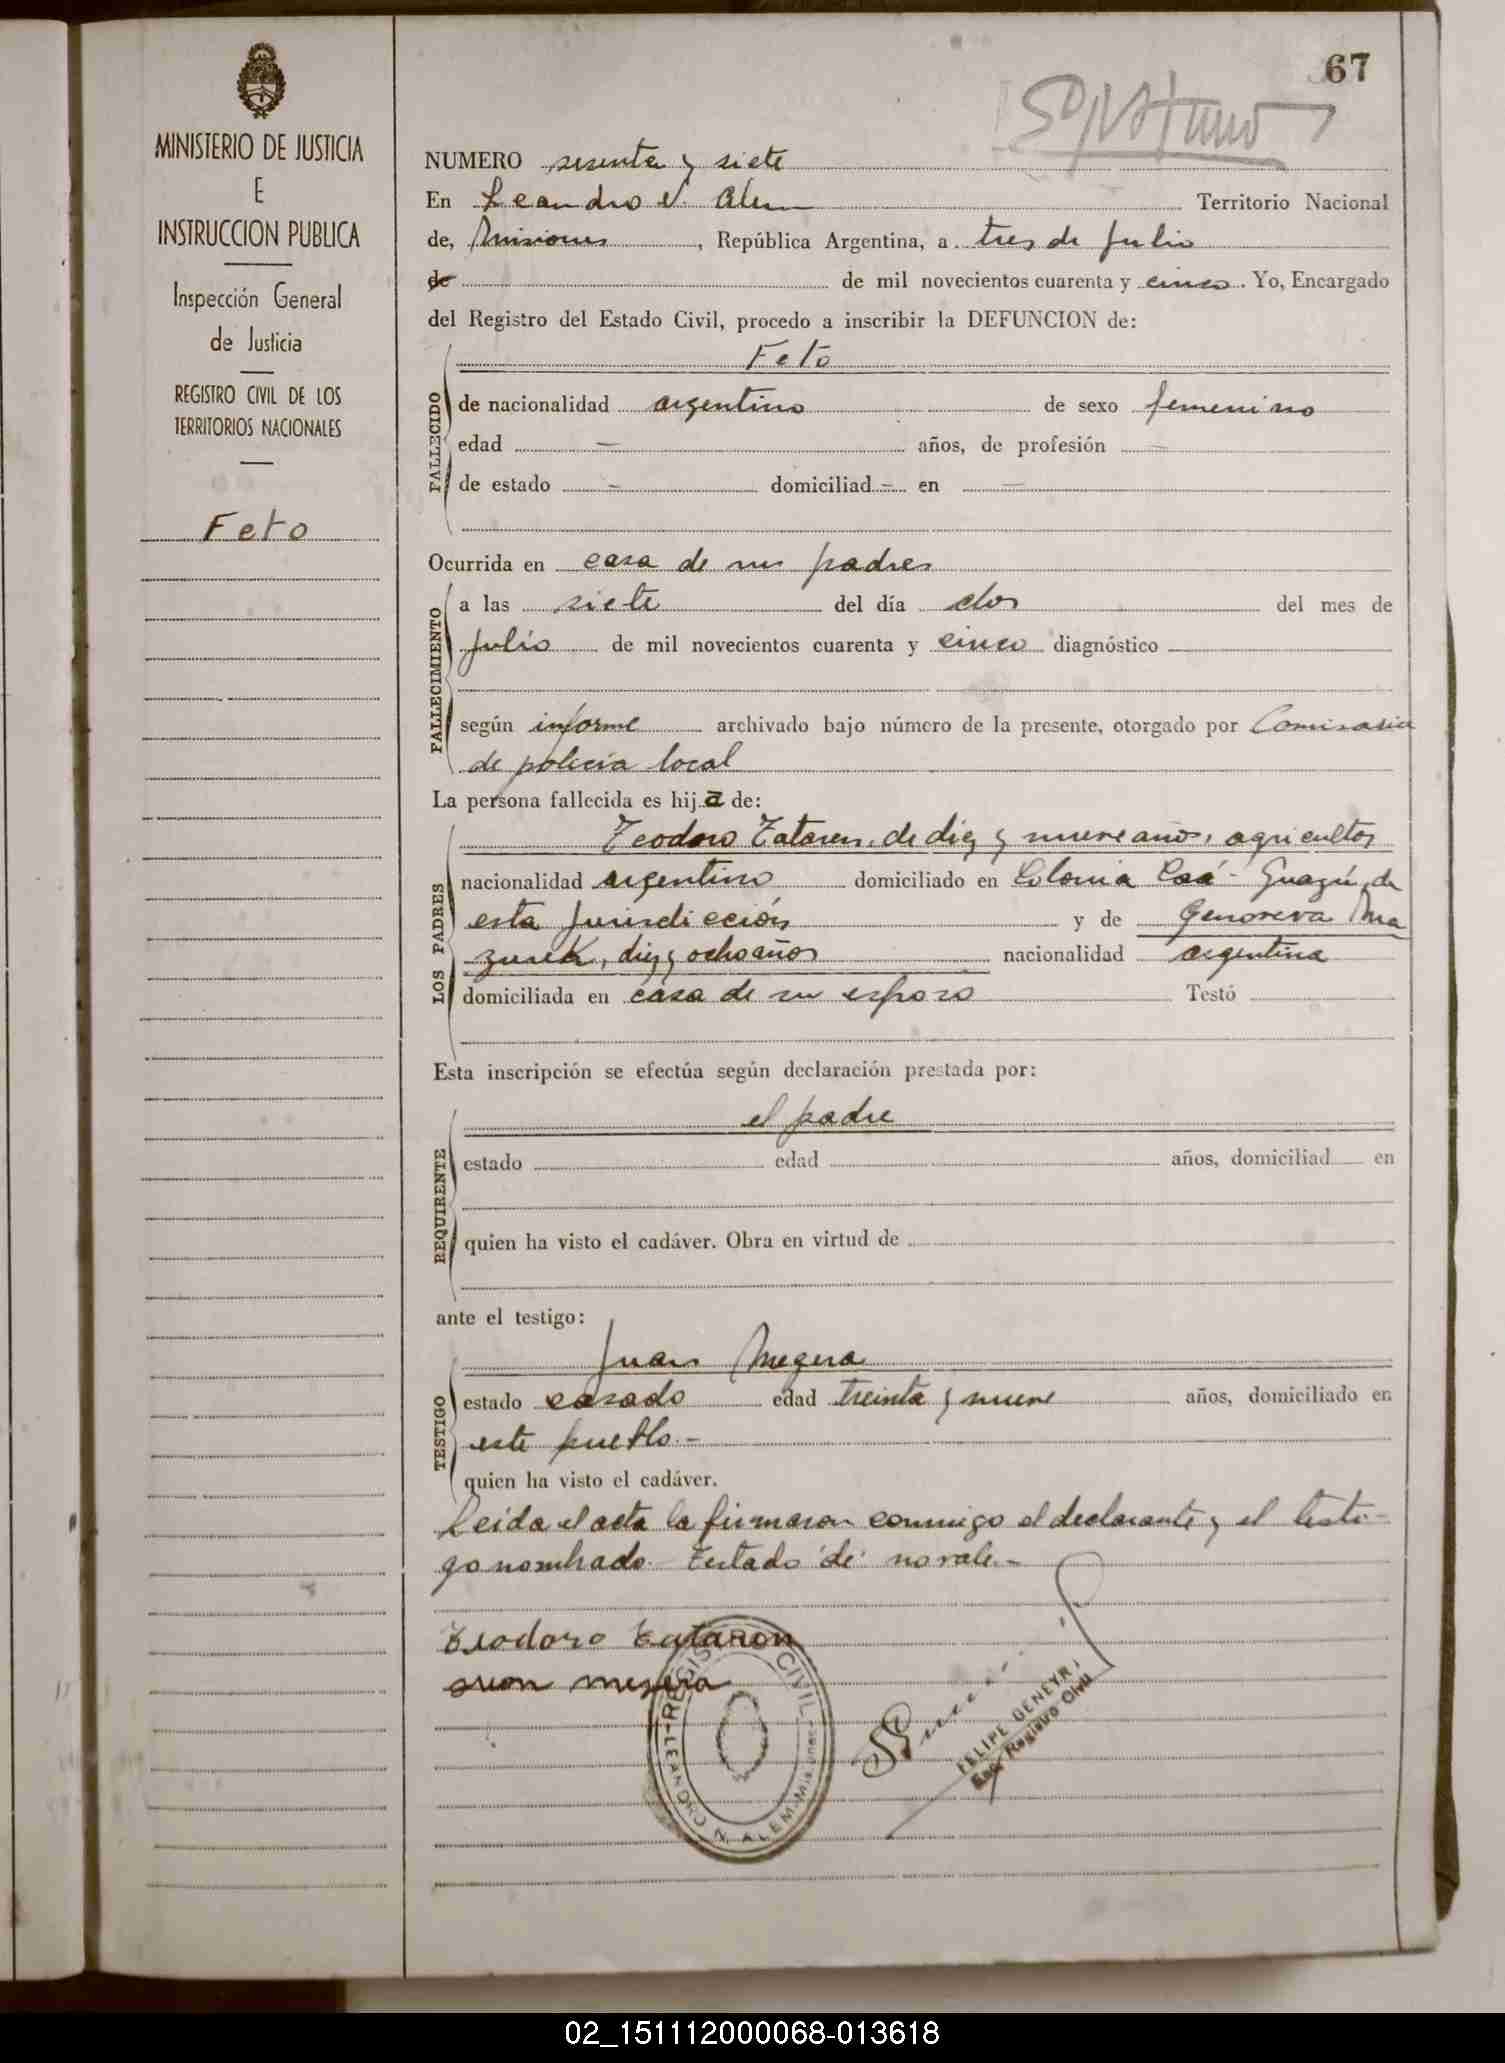 67
MINISTERIO DE JUSTICIA
E
INSTRUCCION PUBLICA
Inspección General
de Justicia
REGISTRO CIVIL DE LOS
TERRITORIOS NACIONALES
Feto
NUMERO sesenta y siete
En Leandro N. Alem Territorio Nacional
de, Misiones, República Argentina, a tres de Julio
de de mil novecientos cuarenta y cinco. Yo, Encargado
del Registro del Estado Civil, procedo a inscribir la DEFUNCION de:
FALLECIDO
Feto
de nacionalidad argentino de sexo femenino
edad — años, de profesión —
de estado — domiciliad — en —
Ocurrida en casa de sus padres
FALLECIMIENTO
a las siete del día dos del mes de
Julio de mil novecientos cuarenta y cinco diagnóstico
según informe archivado bajo número de la presente, otorgado por Comisaria
de policía local
La persona fallecida es hija de:
LOS PADRES
Teodoro Tataren, de diez y nueve años, agricultor
nacionalidad argentino domiciliado en Colonia Caá-Guazú, de
esta Jurisdicción y de Genoveva Ma
zurek, diez y ocho años nacionalidad argentina
domiciliada en casa de su esposo Testó
Esta inscripción se efectúa según declaración prestada por:
REQUIRENTE
el padre
estado edad años, domiciliad en
quien ha visto el cadáver. Obra en virtud de
ante el testigo:
TESTIGO
Juan Megera
estado casado edad treinta y nueve años, domiciliado en
este pueblo.-
quien ha visto el cadáver.
Leída el acta la firmaron conmigo el declarante y el testi-
go nombrado. Testado "de" no vale.-
Teodoro Tataron
REGISTRO CIVIL
LEANDRO N. ALEM-Misiones
FELIPE GENEYR
Enc. Registro Civil
02_151112000068-013618